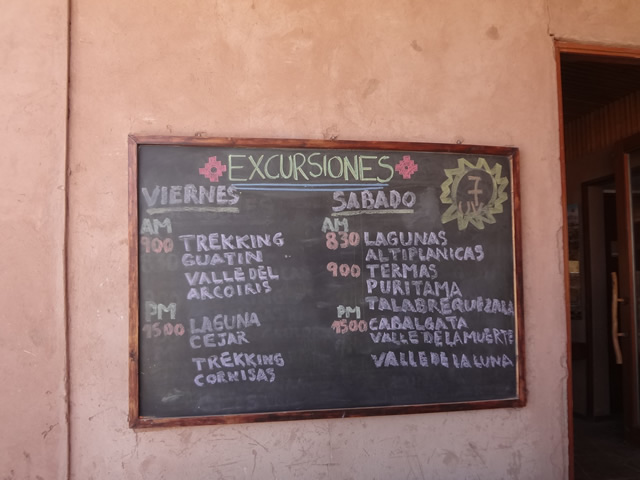 EXCURSIONES
VIERNES
AM
900 TREKKING
GUATIN
VALLE DEL
ARCOIRIS
PM
1500 LAGUNA
CEJAR
TREKKING
CORNISAS
SABADO
AM
830 LAGUNAS
ALTIPLANICAS
900 TERMAS
PURITAMA
TALABREQUEZALA
PM
1500 CABALGATA
VALLE DE LA MUERTE
VALLE DE LA LUNA
7
UV